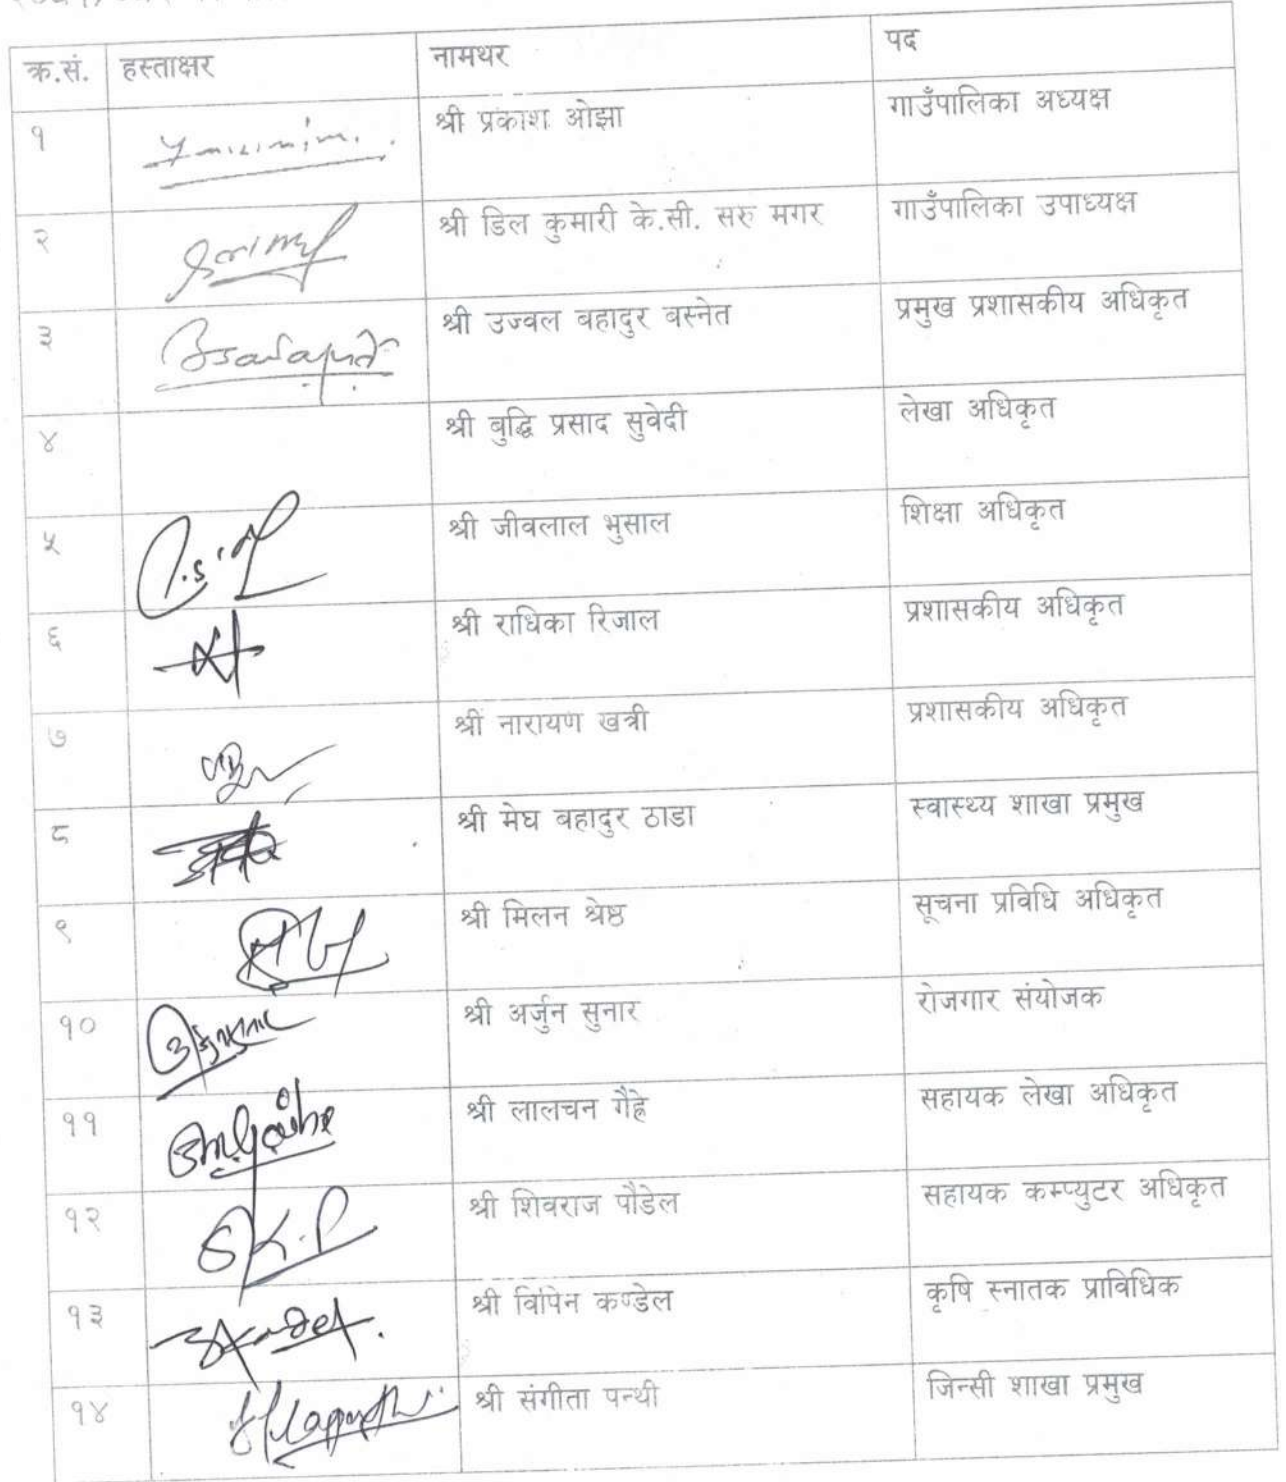 क्र.सं. हस्ताक्षर नामथर पद
१ श्री प्रकाश ओझा गाउँपालिका अध्यक्ष
२ श्री डिल कुमारी के.सी. सरु मगर गाउँपालिका उपाध्यक्ष
३ श्री उज्वल बहादुर बस्नेत प्रमुख प्रशासकीय अधिकृत
४ श्री बुद्धि प्रसाद सुवेदी लेखा अधिकृत
५ श्री जीवलाल भुसाल शिक्षा अधिकृत
६ श्री राधिका रिजाल प्रशासकीय अधिकृत
७ श्री नारायण खत्री प्रशासकीय अधिकृत
८ श्री मेघ बहादुर ठाडा स्वास्थ्य शाखा प्रमुख
९ श्री मिलन श्रेष्ठ सूचना प्रविधि अधिकृत
१० श्री अर्जुन सुनार रोजगार संयोजक
११ श्री लालचन गैह्रे सहायक लेखा अधिकृत
१२ S.K.P श्री शिवराज पौडेल सहायक कम्प्युटर अधिकृत
१३ श्री विपिन कण्डेल कृषि स्नातक प्राविधिक
१४ श्री संगीता पन्थी जिन्सी शाखा प्रमुख